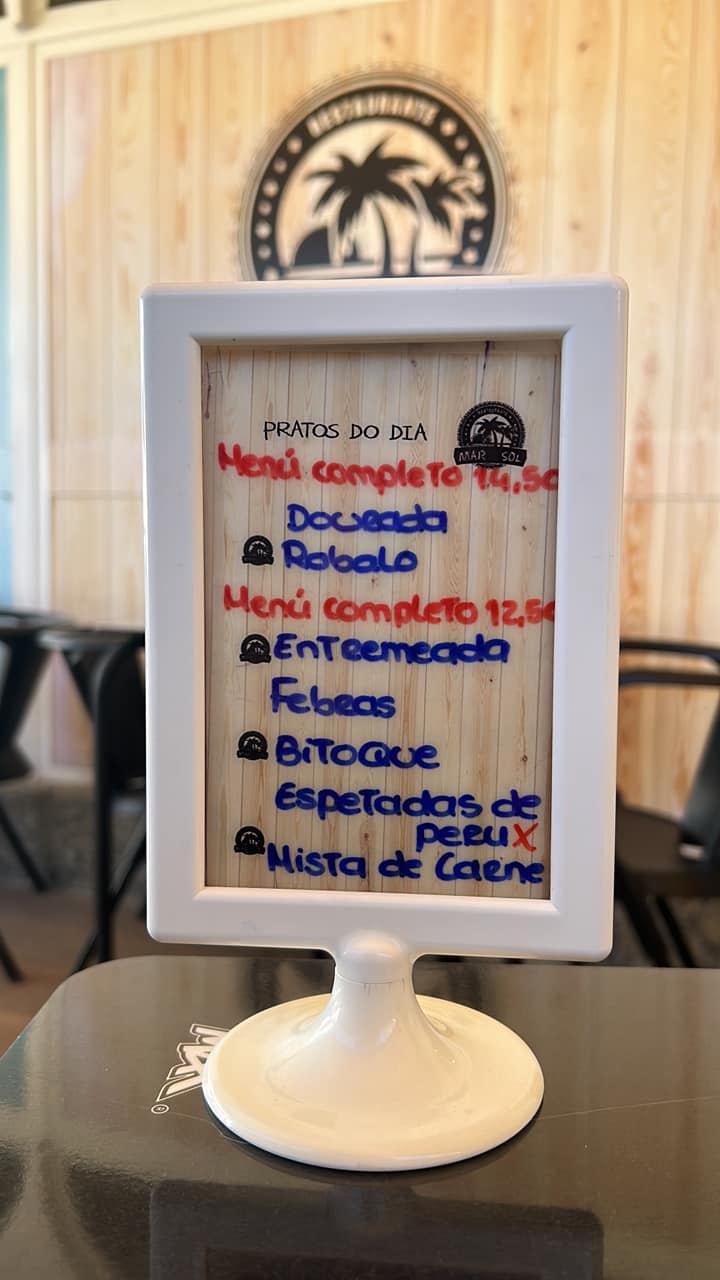 RESTAURANTE
PRATOS DO DIA
MAR SOL
Menú completo 14,50
Doueada
Robalo
Menú completo 12,50
Entremeada
Febras
Bitoque
Espetadas de
peru X
Mista de Carne